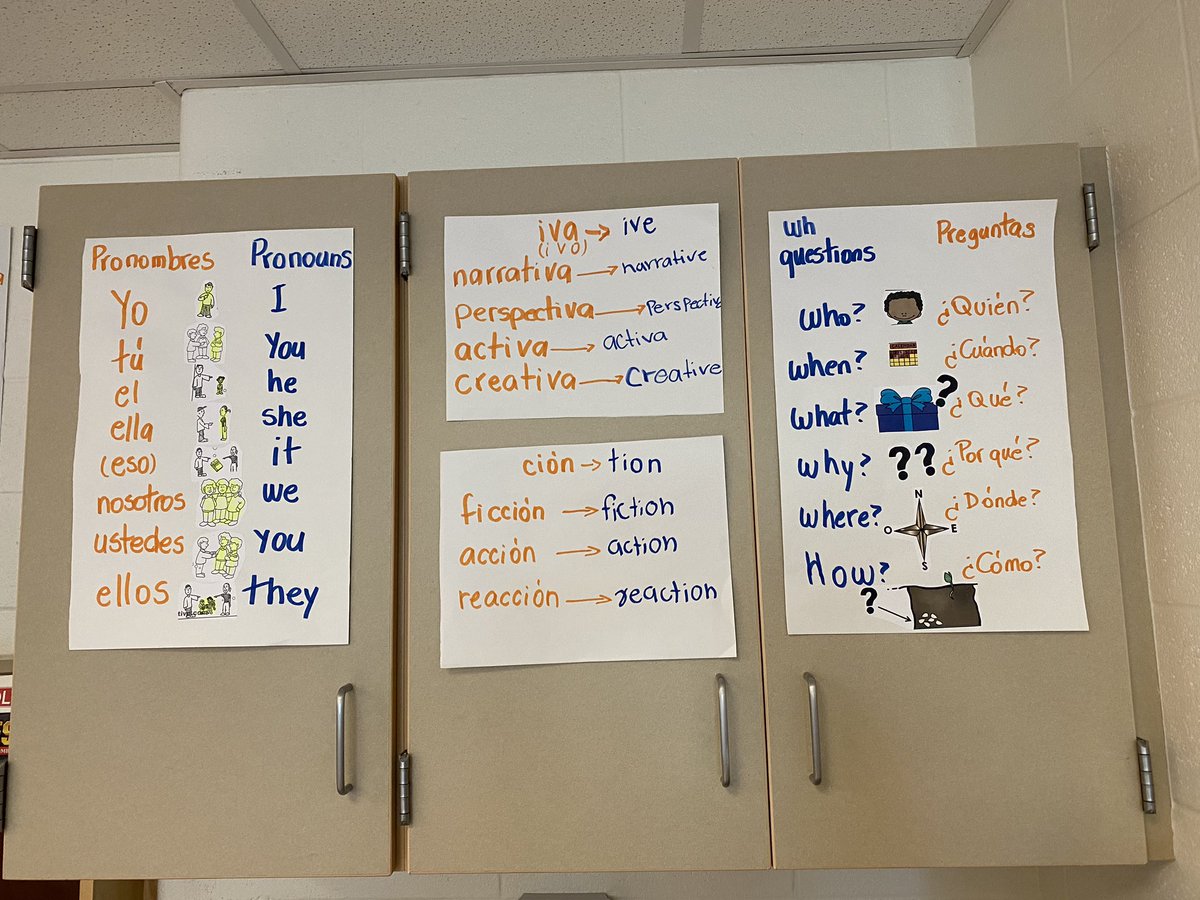 Pronombres Pronouns
Yo I
tú You
el he
ella she
(eso) it
nosotros we
ustedes you
ellos they
iva → ive
(ivo)
narrativa → narrative
perspectiva → Perspectiv
activa → activa
creativa → Creative
ción → tion
ficción → fiction
acción → action
reacción → reaction
Wh questions Preguntas
Who? ¿Quién?
When? ¿Cuándo?
What? ? ¿Qué?
Why? ?? ¿Por qué?
N
Where? ¿Dónde?
O E
S
How? ¿Cómo?
?